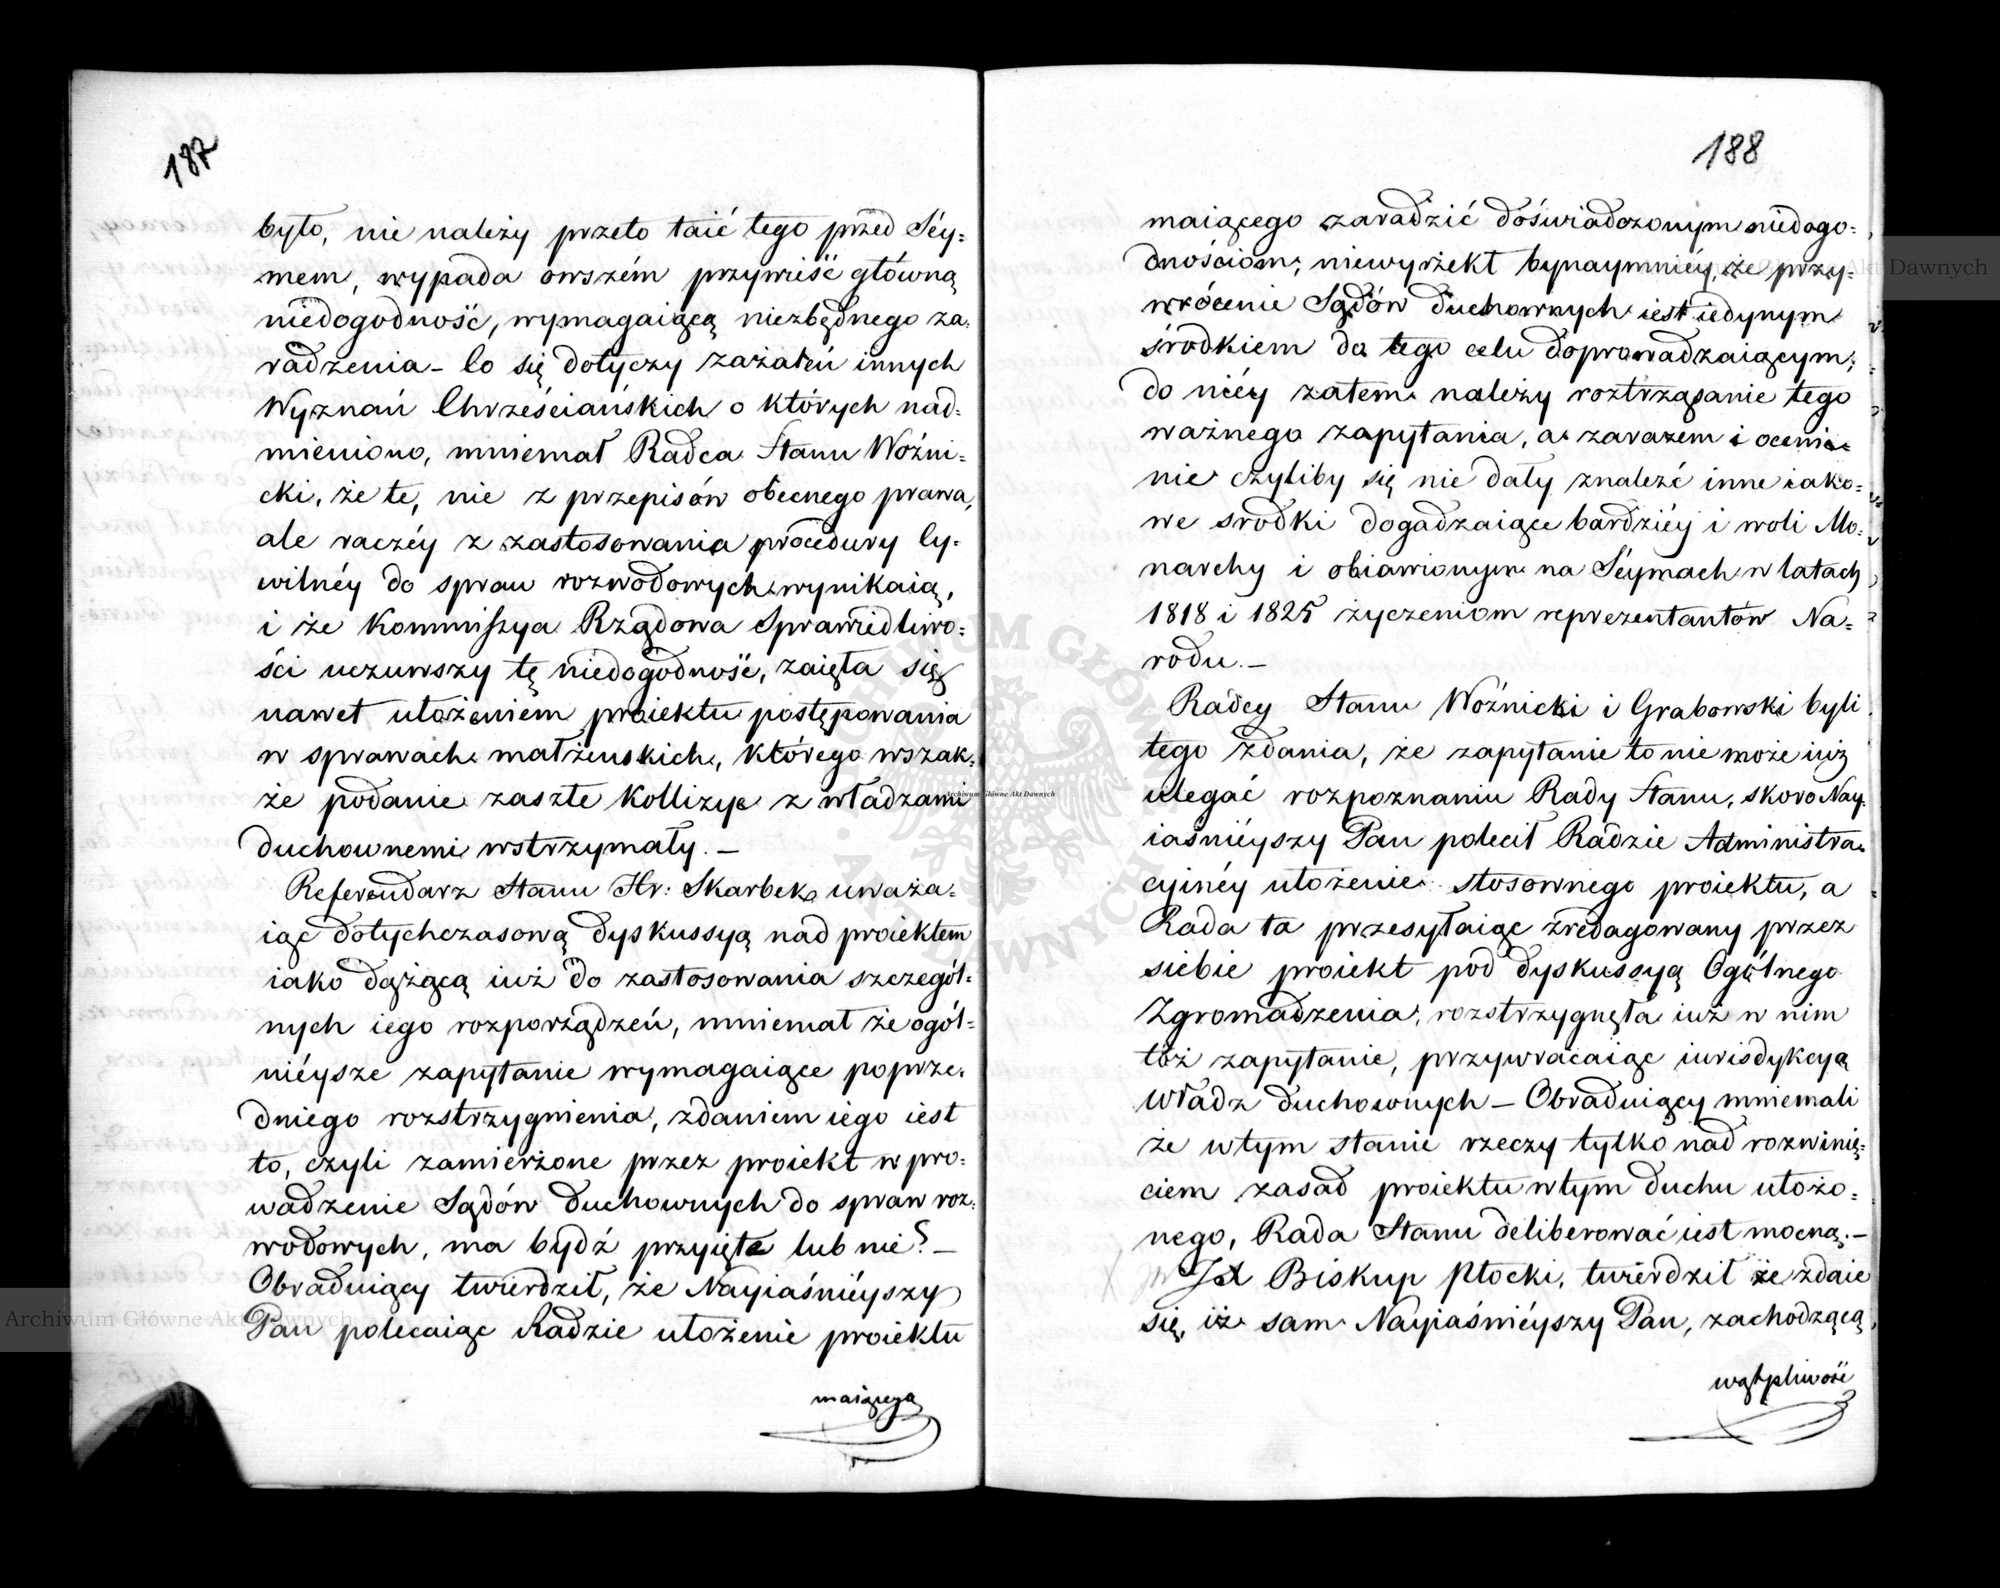 187
było, nie należy przeto taić tego przed Séy=
mem, wypada owszém przywieść główną
niedogodność, wymagaiącą niezbędnego za=
radzenia – Co się dotyczy zażaleń innych
Wyznań Chrześciańskich o których nad=
mieniono, mniemał Radca Stanu Woźni=
cki, że te, nie z przepisów obecnego prawa,
ale raczéy z zastosowania procedury Cy=
wilnéy do spraw rozwodowych wynikaią,
i że Kommissya Rządowa Sprawiedliwo=
ści uczuwszy tę niedogodność, zaięła się
nawet ułożeniem proiektu postępowania
w sprawach małżeńskich, którego wszak=
że podanie zaszłe Kollizye z władzami
duchownemi wstrzymały. –
Referendarz Stanu Hr: Skarbek uważa=
iąc dotychczasową dyskussyą nad proiektem
iako dążącą iuż do zastosowania szczegól=
nych iego rozporządzeń, mniemał że ogól=
niéysze zapytanie wymagaiące poprze=
dniego rozstrzygnienia, zdaniem iego iest
to, czyli zamierzone przez proiekt wpro=
wadzenie Sądów duchownych do spraw roz=
wodowych, ma bydź przyięte lub nie? –
Obraduiący twierdził, że Nayiaśniéyszy
Pan polecaiąc Radzie ułożenie proiektu
maiącego
188
maiącego zaradzić doświadczonym niedogo=
dnościom, niewyrzekł bynaymniéy, że przy=
wrócenie Sądów duchownych iest iedynym
środkiem do tego celu doprowadzaiącym,
do niéy zatem należy roztrząsanie tego
ważnego zapytania, a zarazem i ocenie=
nie czyliby się nie dały znaleźć inne iako=
we srodki dogadzaiące bardziéy i woli Mo=
narchy i obiawionym na Séymach w latach
1818 i 1825 życzeniom reprezentantów Na=
rodu. –
Radcy Stanu Woźnicki i Grabowski byli
tego zdania, że zapytanie to nie może iuż
ulegać rozpoznaniu Rady Stanu, skoro Nay=
iaśniéyszy Pan polecił Radzie Administra=
cyinéy ułożenie stosownego proiektu, a
Rada ta przesyłaiąc zredagowany przez
siebie proiekt pod dyskussyą Ogólnego
Zgromadzenia, rozstrzygnęła iuż w nim
toż zapytanie, przywracaiąc iurisdykcyą
Władz duchownych – Obraduiący mniemali
że w tym stanie rzeczy tylko nad rozwinię=
ciem zasad proiektu w tym duchu ułożo=
nego, Rada Stanu deliberować iest mocną. –
JX Biskup Płocki, twierdził że zdaie
się, iż sam Nayiaśniéyszy Pan, zachodzącą
wątpliwość
Archiwum Główne Akt Dawnych
Archiwum Główne Akt Dawnych